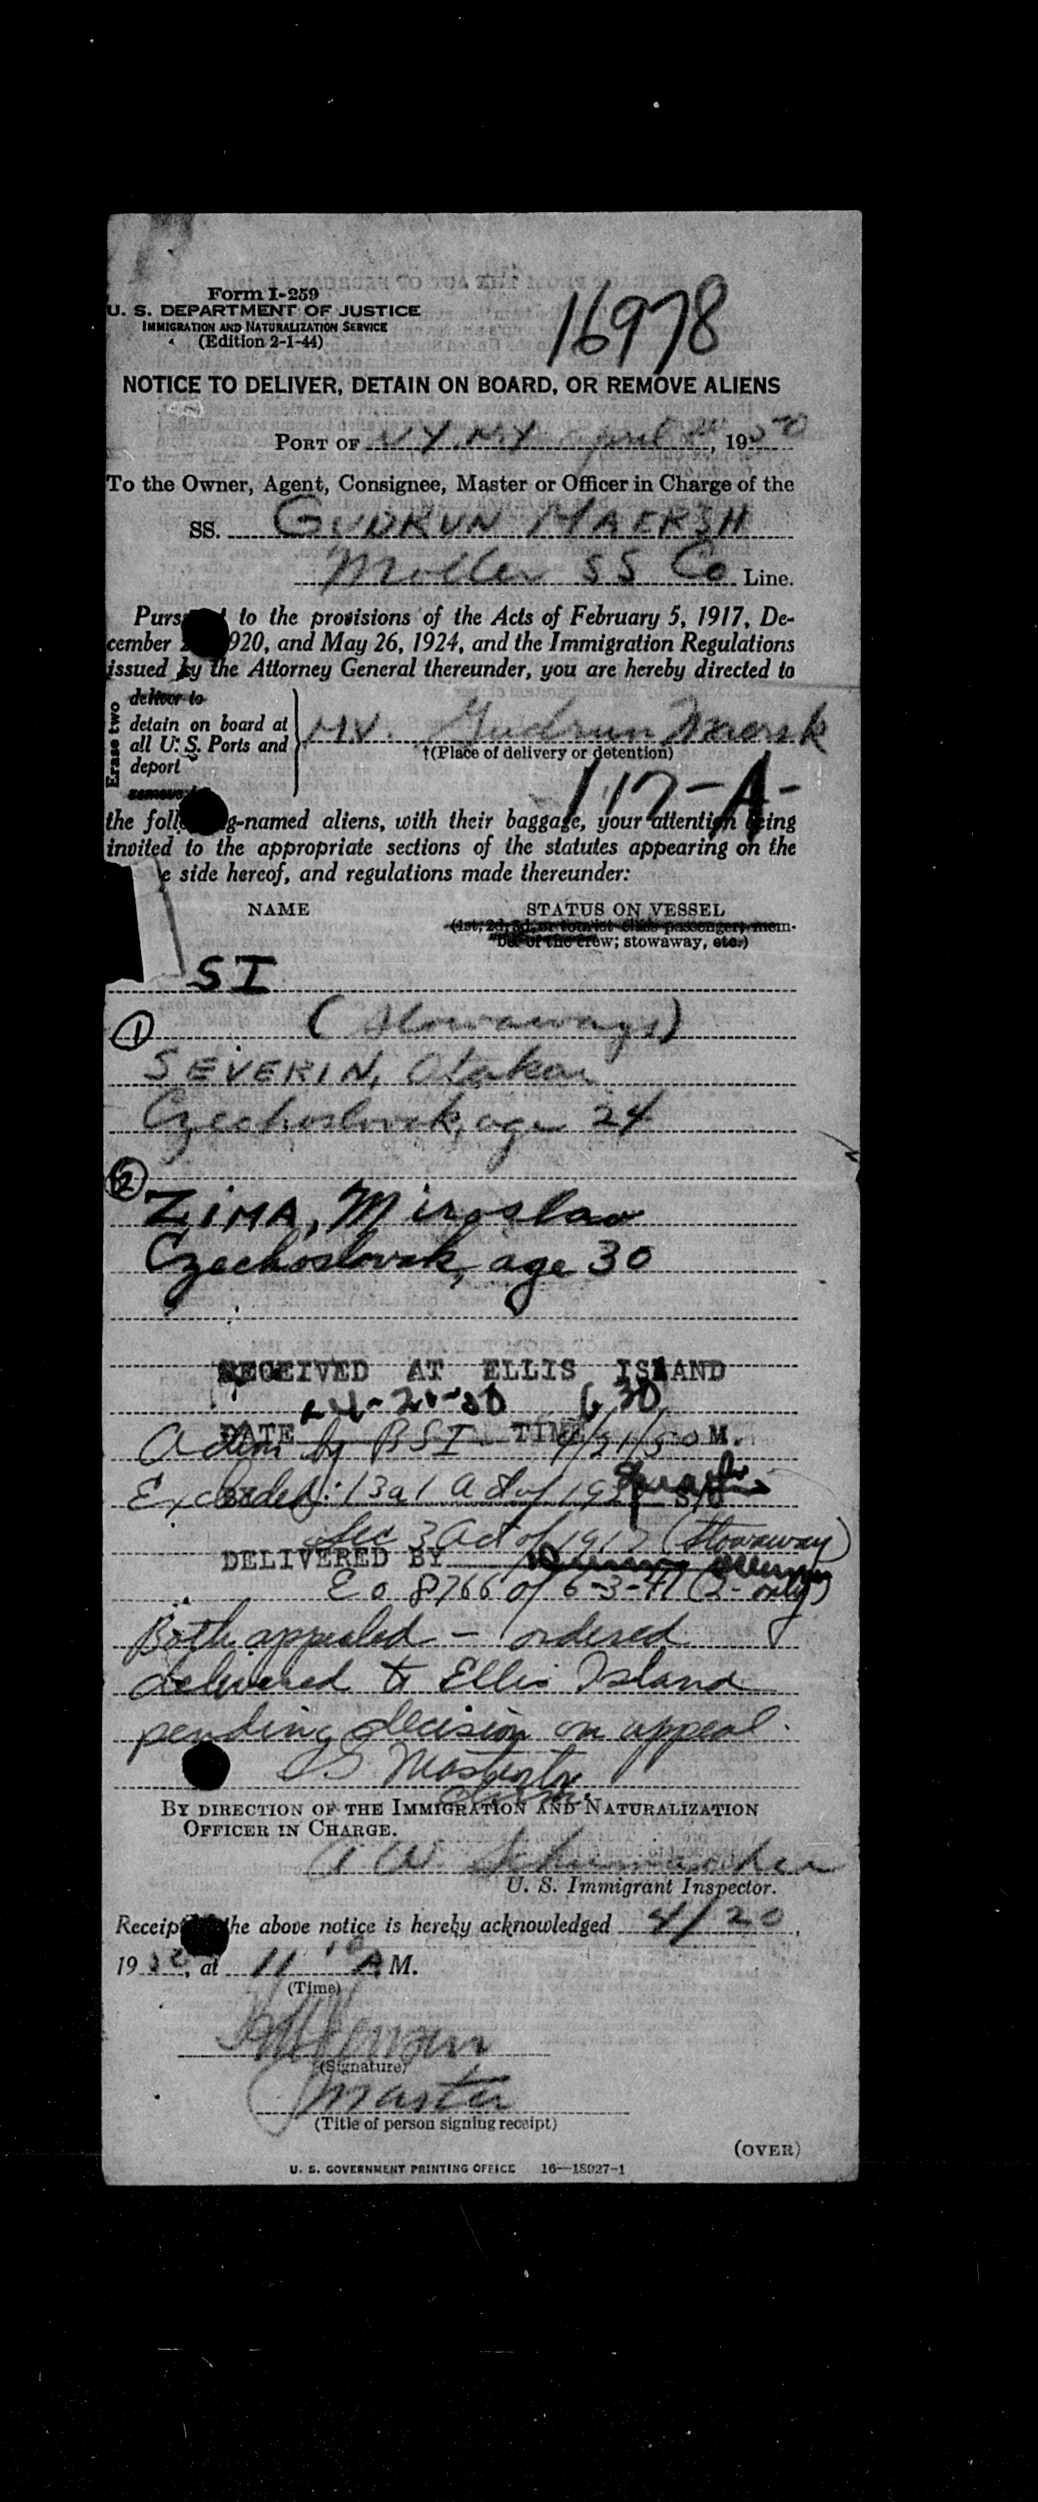 Form I-259
U. S. DEPARTMENT OF JUSTICE
IMMIGRATION AND NATURALIZATION SERVICE
(Edition 2-1-44)
16978
NOTICE TO DELIVER, DETAIN ON BOARD, OR REMOVE ALIENS
PORT OF N.Y. N.Y. April 20, 1950
To the Owner, Agent, Consignee, Master or Officer in Charge of the
SS. GUDRUN MAERSK
Moller SS Co Line.
to the provisions of the Acts of February 5, 1917, De-
cember 920, and May 26, 1924, and the Immigration Regulations
issued by the Attorney General thereunder, you are hereby directed to
Erase two
deliver to
detain on board at
all U. S. Ports and
deport
remove
MV. Gudrun Maersk
†(Place of delivery or detention)
117-A-
the g-named aliens, with their baggage, your attention being
invited to the appropriate sections of the statutes appearing on the
side hereof, and regulations made thereunder:
NAME STATUS ON VESSEL
(1st, 2d, 3d, or tourist class passenger; mem-
ber of the crew; stowaway, etc.)
SI
① (stowaways)
SEVERIN, Otakar
Czechoslovak, age 24
② ZIMA, Miroslav
Czechoslovak, age 30
RECEIVED AT ELLIS ISLAND
4-20-50 6 30
DATE TIME M.
Action by BSI 4/21/50
Excluded: 13a1 Act of 192
Sec 3 Act of 1917 (Stowaway)
DELIVERED BY
EO 8766 of 6-3-41 (2-only)
Both appealed - ordered
delivered to Ellis Island
pending decision on appeal.
BY DIRECTION OF THE IMMIGRATION AND NATURALIZATION
OFFICER IN CHARGE.
A W Schumacher
U. S. Immigrant Inspector.
Receipt the above notice is hereby acknowledged 4/20,
1950, at 11 10 A.M.
(Time)
(Signature)
Master
(Title of person signing receipt)
(OVER)
U. S. GOVERNMENT PRINTING OFFICE 16—18027-1